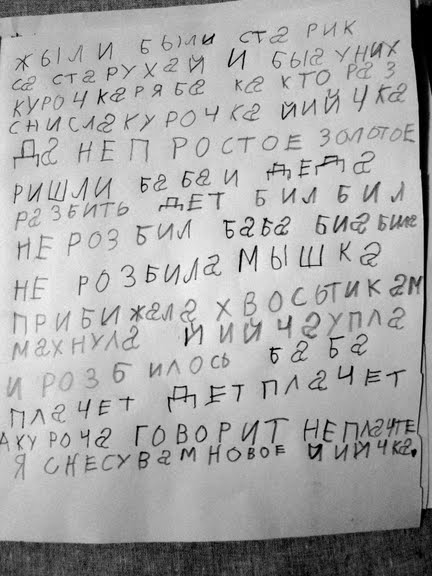 ЖЫЛИ БЫЛИ СТАРИК
СА СТАРУХАЙ И БЫА УНИХ
КУРОЧКА РЯБА КА КТО РАЗ
СНИСЛА КУРОЧКА ЙИЙЧКА
ДА НЕПРОСТОЕ ЗОЛОТОЕ
РИШЛИ БАБА И ДЕДА
РАЗБИТЬ ДЕТ БИЛ БИЛ
НЕ РОЗБИЛ БАБА БИА БИЛА
НЕ РОЗБИЛА МЫШКА
ПРИБИЖАЛА ХВОСЬТИКАМ
МАХНУЛА ЙИЙЧА УПЛА
И РОЗБИЛОСЬ БАБА
ПЛАЧЕТ ДЕТ ПЛАЧЕТ
АКУРОЧА ГОВОРИТ НЕПЛАЧТЕ
Я СНЕСУ ВАМ НОВОЕ ЙИЙЧКА.